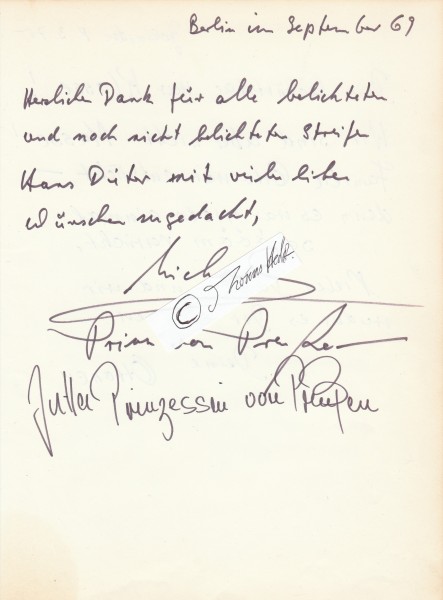 Berlin im September 69
Herzlichen Dank für alle belichteten
und noch nicht belichteten Streifen
Hans Dieter mit vielen lieben
Wünschen zugedacht,
© Thomas
Prinz von Preußen
Jutta Prinzessin von Preußen